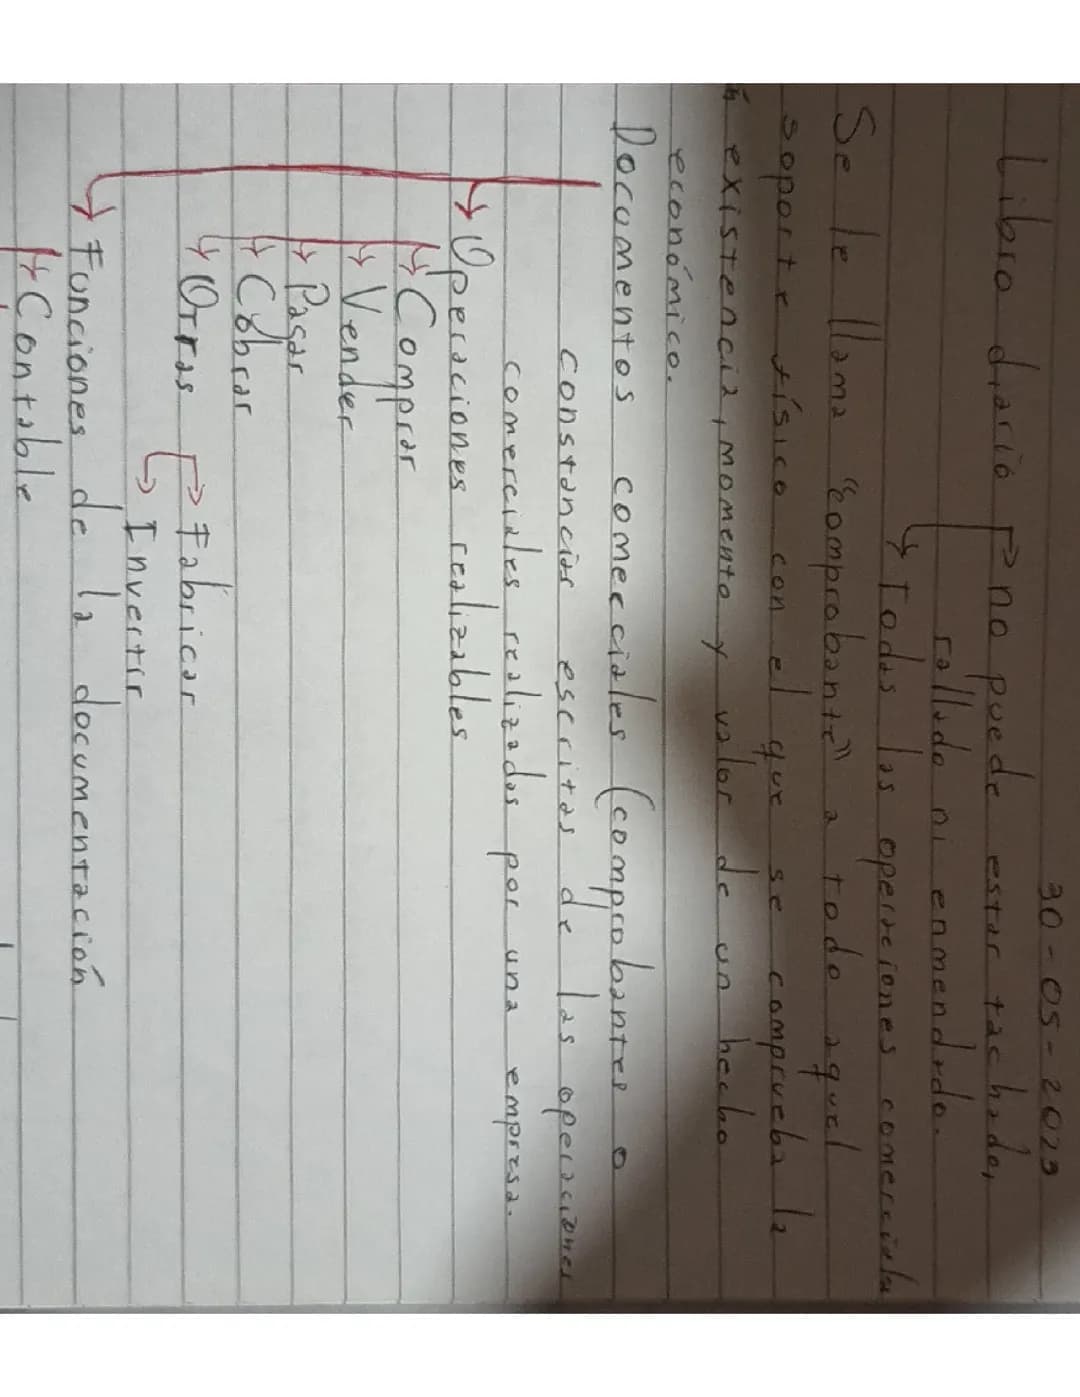 30-05-2023
Libro diario no puede estar tachado,
rallado ni enmendado.
Todas las operaciones comerciales
Se le llama "comprobante" a todo aquel
soporte físico con el que se comprueba la
existencia, momento y valor de un hecho
económico.
Documentos comerciales (comprobantes o
constancias escritas de las operaciones
comerciales realizadas por una empresa.
Operaciones realizables
Comprar
Vender
Pagar
Cobrar
Otras Fabricar
Invertir
Funciones de la documentación
Contable